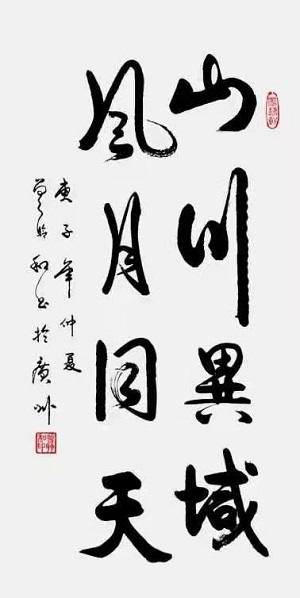 山川異域
風月同天
庚子年仲夏
和書於廣州